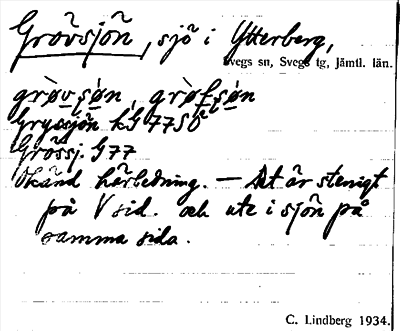 Grövsjön, sjö i Ytterberg,
Svegs sn, Svegs tg, Jämtl. län.
grøvsøn, grøfsøn
Gryssjön kG 77SÖ
Grössj. G77
Okänd härledning. — Det är stenigt
på V sid. och ute i sjön på
samma sida.
C. Lindberg 1934.